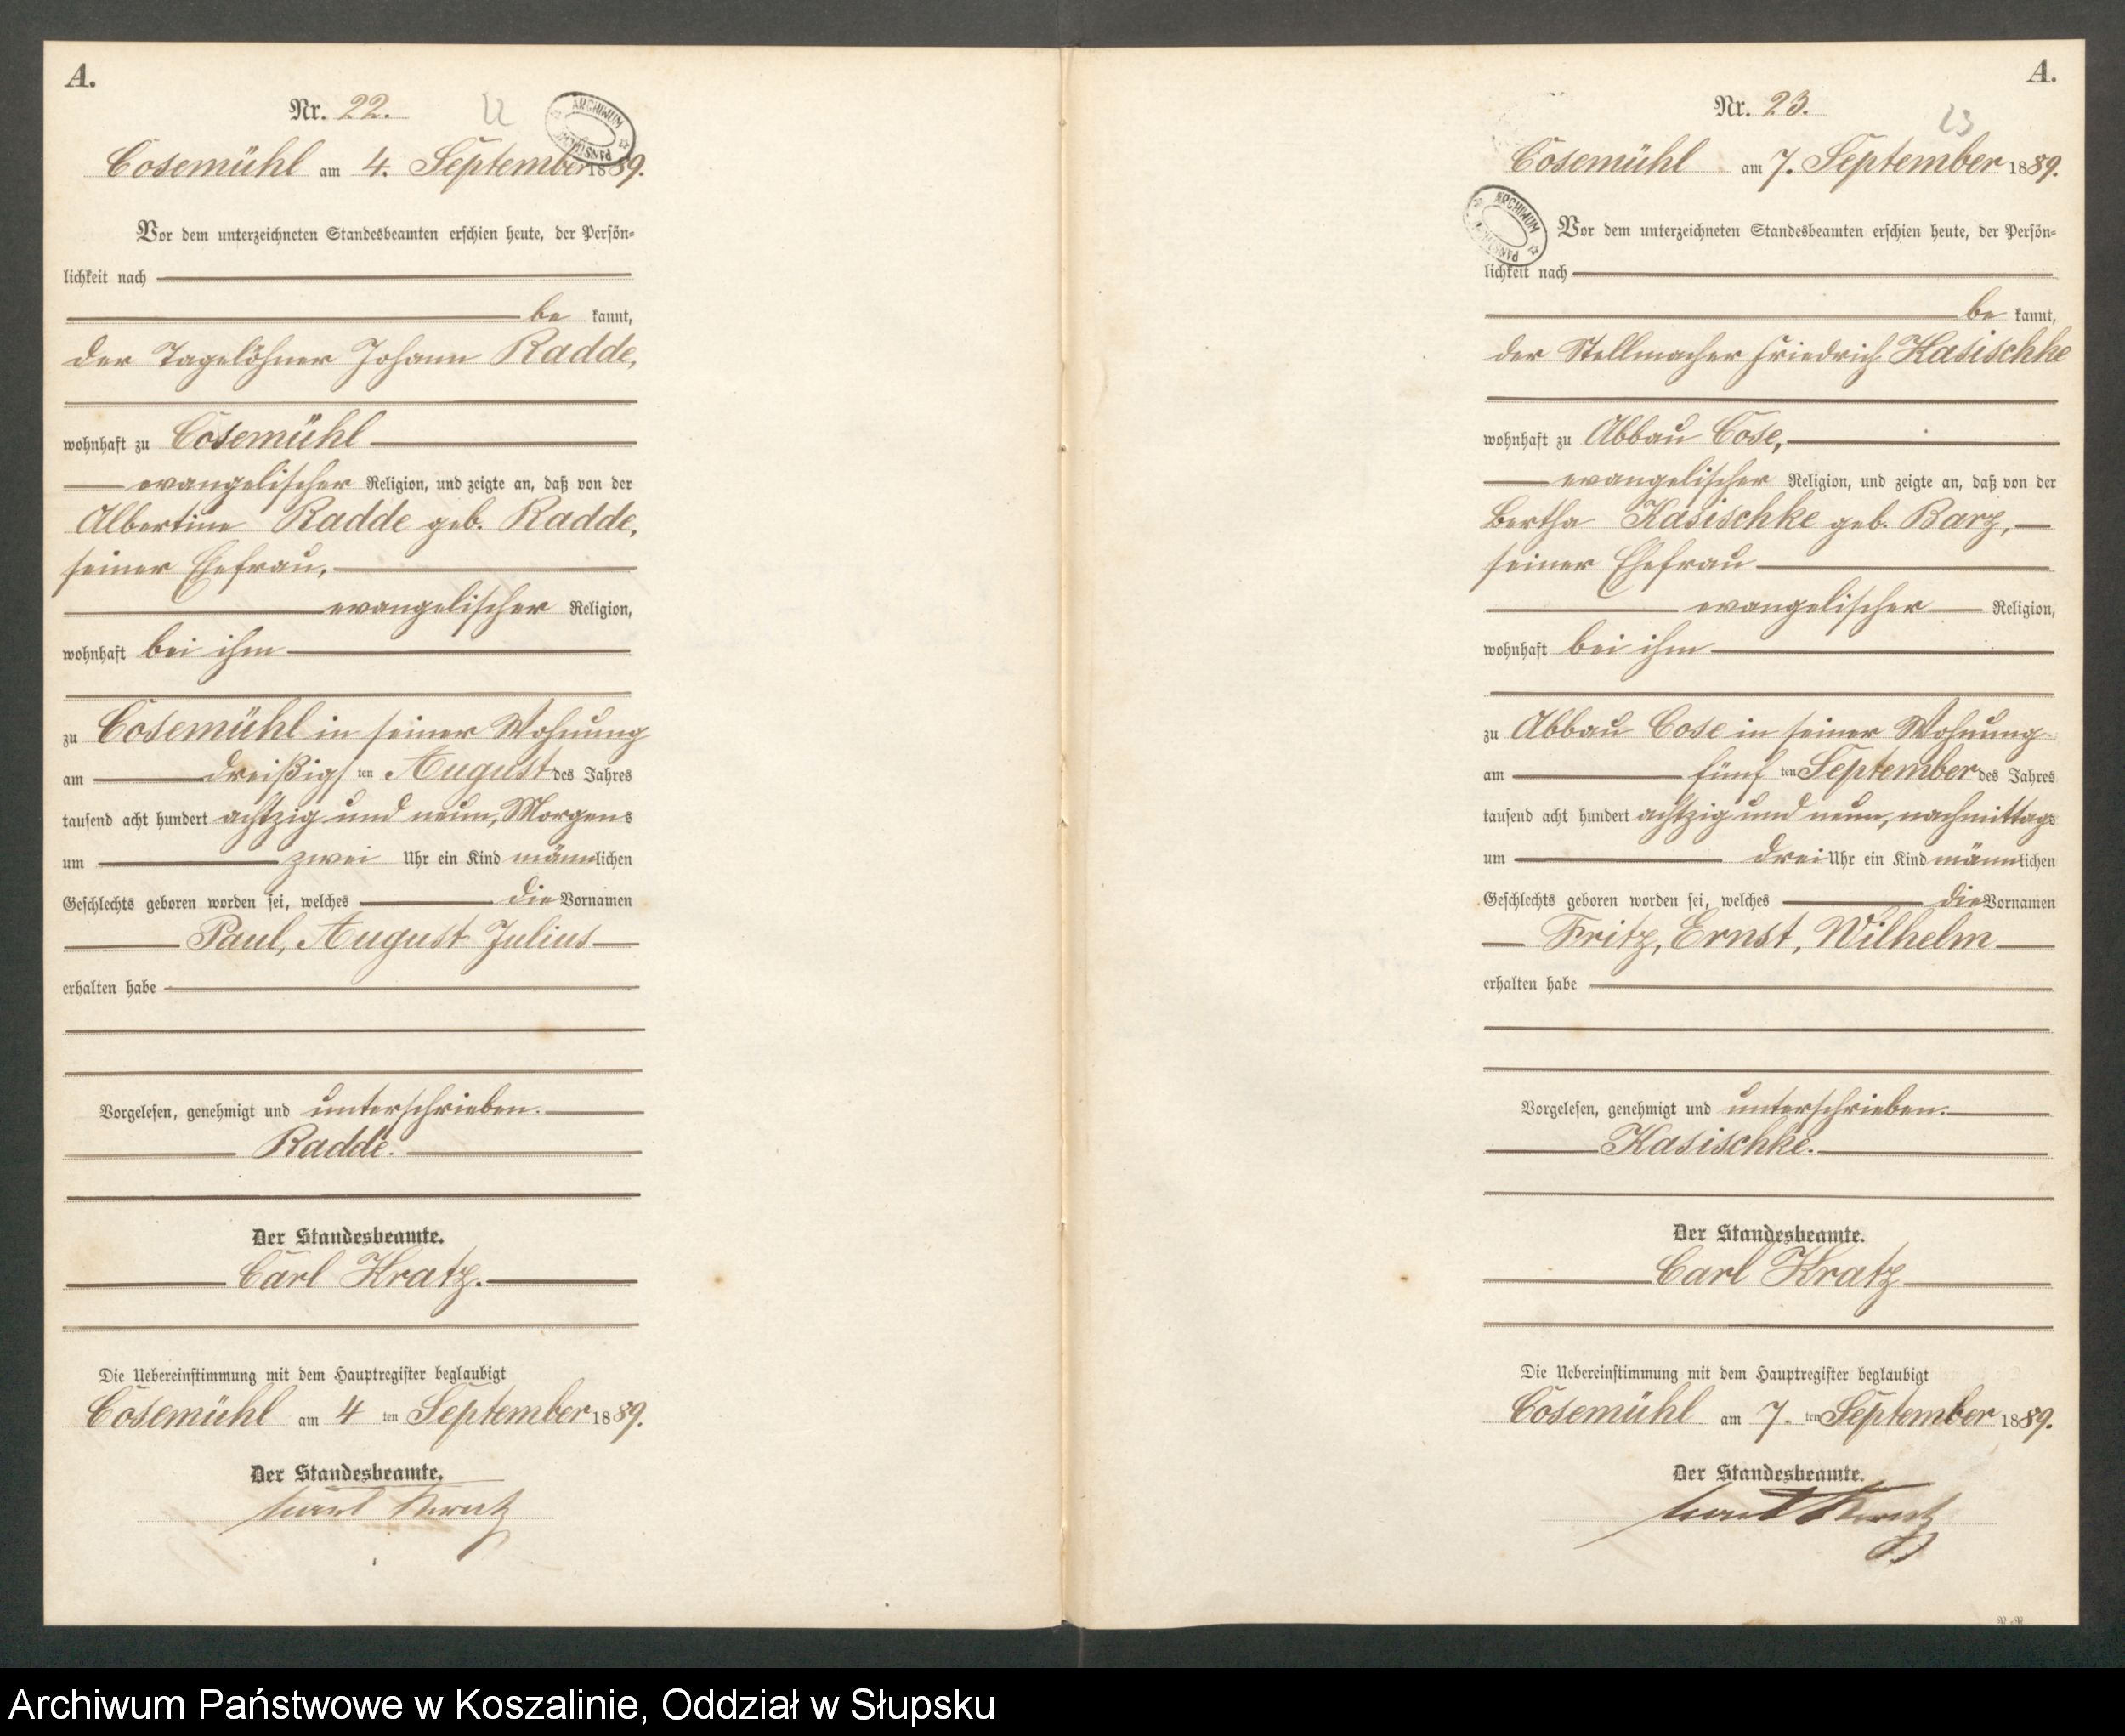 A.
Nr. 22.
22
ARCHIWUM
Cosemühl am 4. September 1889.
Vor dem unterzeichneten Standesbeamten erschien heute, der Persön-
lichkeit nach
be kannt,
der Tagelöhner Johann Radde,
wohnhaft zu Cosemühl
evangelischer Religion, und zeigte an, daß von der
Albertine Radde geb. Radde,
seiner Ehefrau,
evangelischer Religion,
wohnhaft bei ihm
zu Cosemühl in seiner Wohnung
am dreißigs ten August des Jahres
tausend acht hundert achtzig und neun, Morgens
um zwei Uhr ein Kind männlichen
Geschlechts geboren worden sei, welches die Vornamen
Paul, August Julius
erhalten habe
Vorgelesen, genehmigt und unterschrieben.
Radde.
Der Standesbeamte.
Carl Kratz.
Die Uebereinstimmung mit dem Hauptregister beglaubigt
Cosemühl am 4 ten September 1889.
Der Standesbeamte.
Carl Kratz
A.
Nr. 23.
23
Cosemühl am 7. September 1889.
ARCHIWUM
Vor dem unterzeichneten Standesbeamten erschien heute, der Persön-
lichkeit nach
be kannt,
der Stellmacher Friedrich Kasischke
wohnhaft zu Abbau Cose,
evangelischer Religion, und zeigte an, daß von der
Bertha Kasischke geb. Barz,
seiner Ehefrau
evangelischer Religion,
wohnhaft bei ihm
zu Abbau Cose in seiner Wohnung
am fünf ten September des Jahres
tausend acht hundert achtzig und neun, nachmittags
um drei Uhr ein Kind männlichen
Geschlechts geboren worden sei, welches die Vornamen
Fritz, Ernst, Wilhelm
erhalten habe
Vorgelesen, genehmigt und unterschrieben.
Kasischke.
Der Standesbeamte.
Carl Kratz
Die Uebereinstimmung mit dem Hauptregister beglaubigt
Cosemühl am 7. ten September 1889.
Der Standesbeamte.
Carl Kratz
Archiwum Państwowe w Koszalinie, Oddział w Słupsku